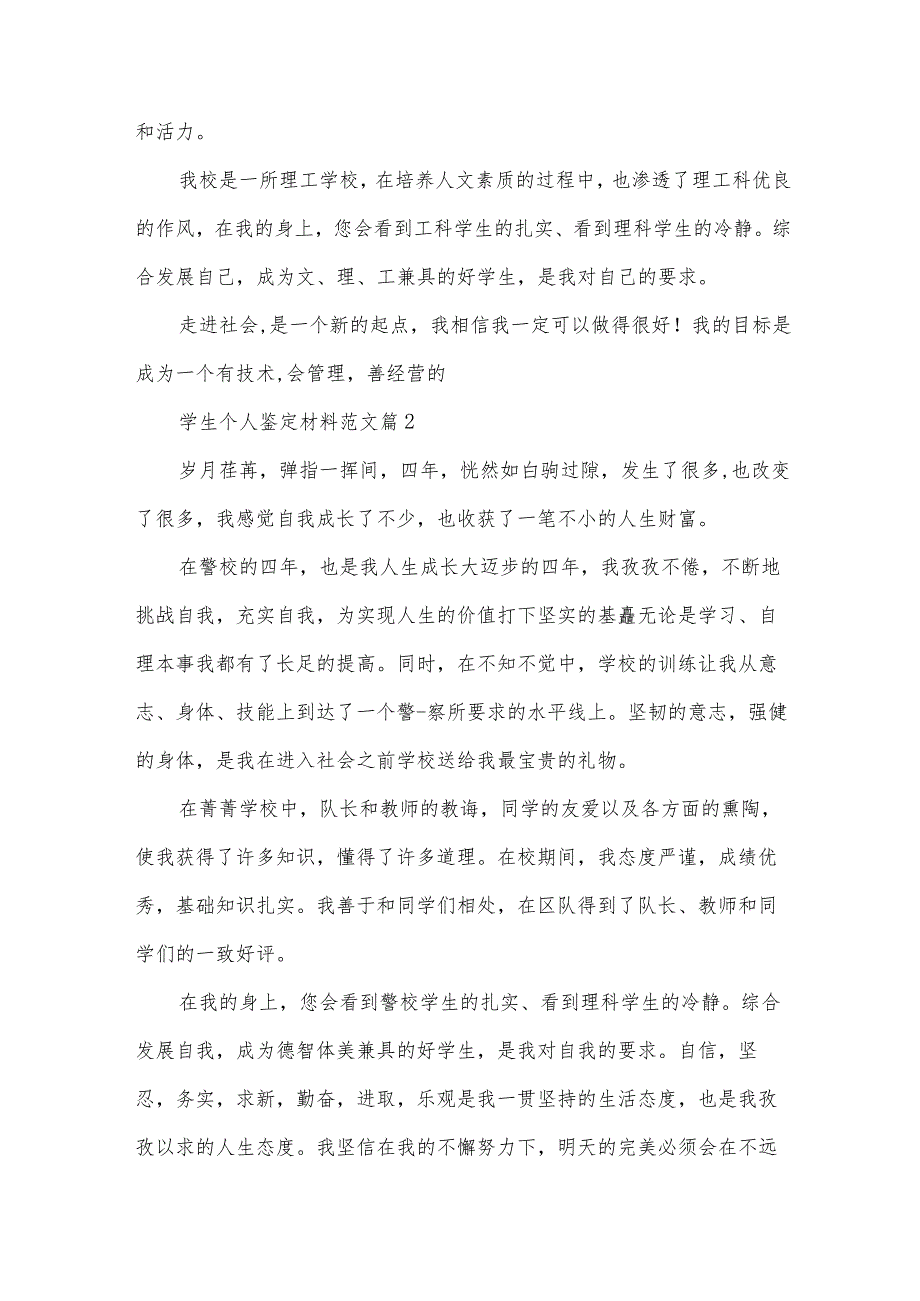 和活力。
我校是一所理工学校，在培养人文素质的过程中，也渗透了理工科优良
的作风，在我的身上，您会看到工科学生的扎实、看到理科学生的冷静。综
合发展自己，成为文、理、工兼具的好学生，是我对自己的要求。
走进社会,是一个新的起点，我相信我一定可以做得很好！我的目标是
成为一个有技术,会管理，善经营的
学生个人鉴定材料范文篇2
岁月荏苒，弹指一挥间，四年，恍然如白驹过隙，发生了很多,也改变
了很多，我感觉自我成长了不少，也收获了一笔不小的人生财富。
在警校的四年，也是我人生成长大迈步的四年，我孜孜不倦，不断地
挑战自我，充实自我，为实现人生的价值打下坚实的基矗无论是学习、自
理本事我都有了长足的提高。同时，在不知不觉中，学校的训练让我从意
志、身体、技能上到达了一个警-察所要求的水平线上。坚韧的意志，强健
的身体，是我在进入社会之前学校送给我最宝贵的礼物。
在菁菁学校中，队长和教师的教诲，同学的友爱以及各方面的熏陶，
使我获得了许多知识，懂得了许多道理。在校期间，我态度严谨，成绩优
秀，基础知识扎实。我善于和同学们相处，在区队得到了队长、教师和同
学们的一致好评。
在我的身上，您会看到警校学生的扎实、看到理科学生的冷静。综合
发展自我，成为德智体美兼具的好学生，是我对自我的要求。自信，坚
忍，务实，求新，勤奋，进取，乐观是我一贯坚持的生活态度，也是我孜
孜以求的人生态度。我坚信在我的不懈努力下，明天的完美必须会在不远